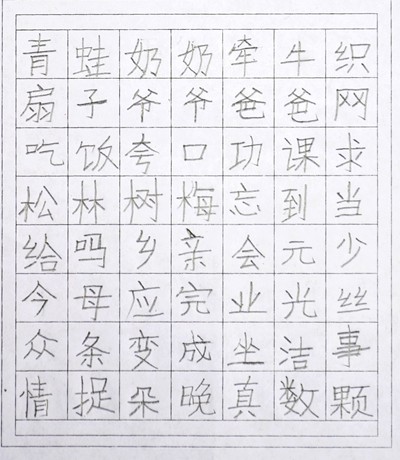 青蛙奶奶牵牛织
扇子爷爷爸爸网
吃饭夸口功课求
松林树梅忘到当
给吗乡亲会元少
今母应完业光丝
众条变成坐洁事
情捉朵晚真数颗